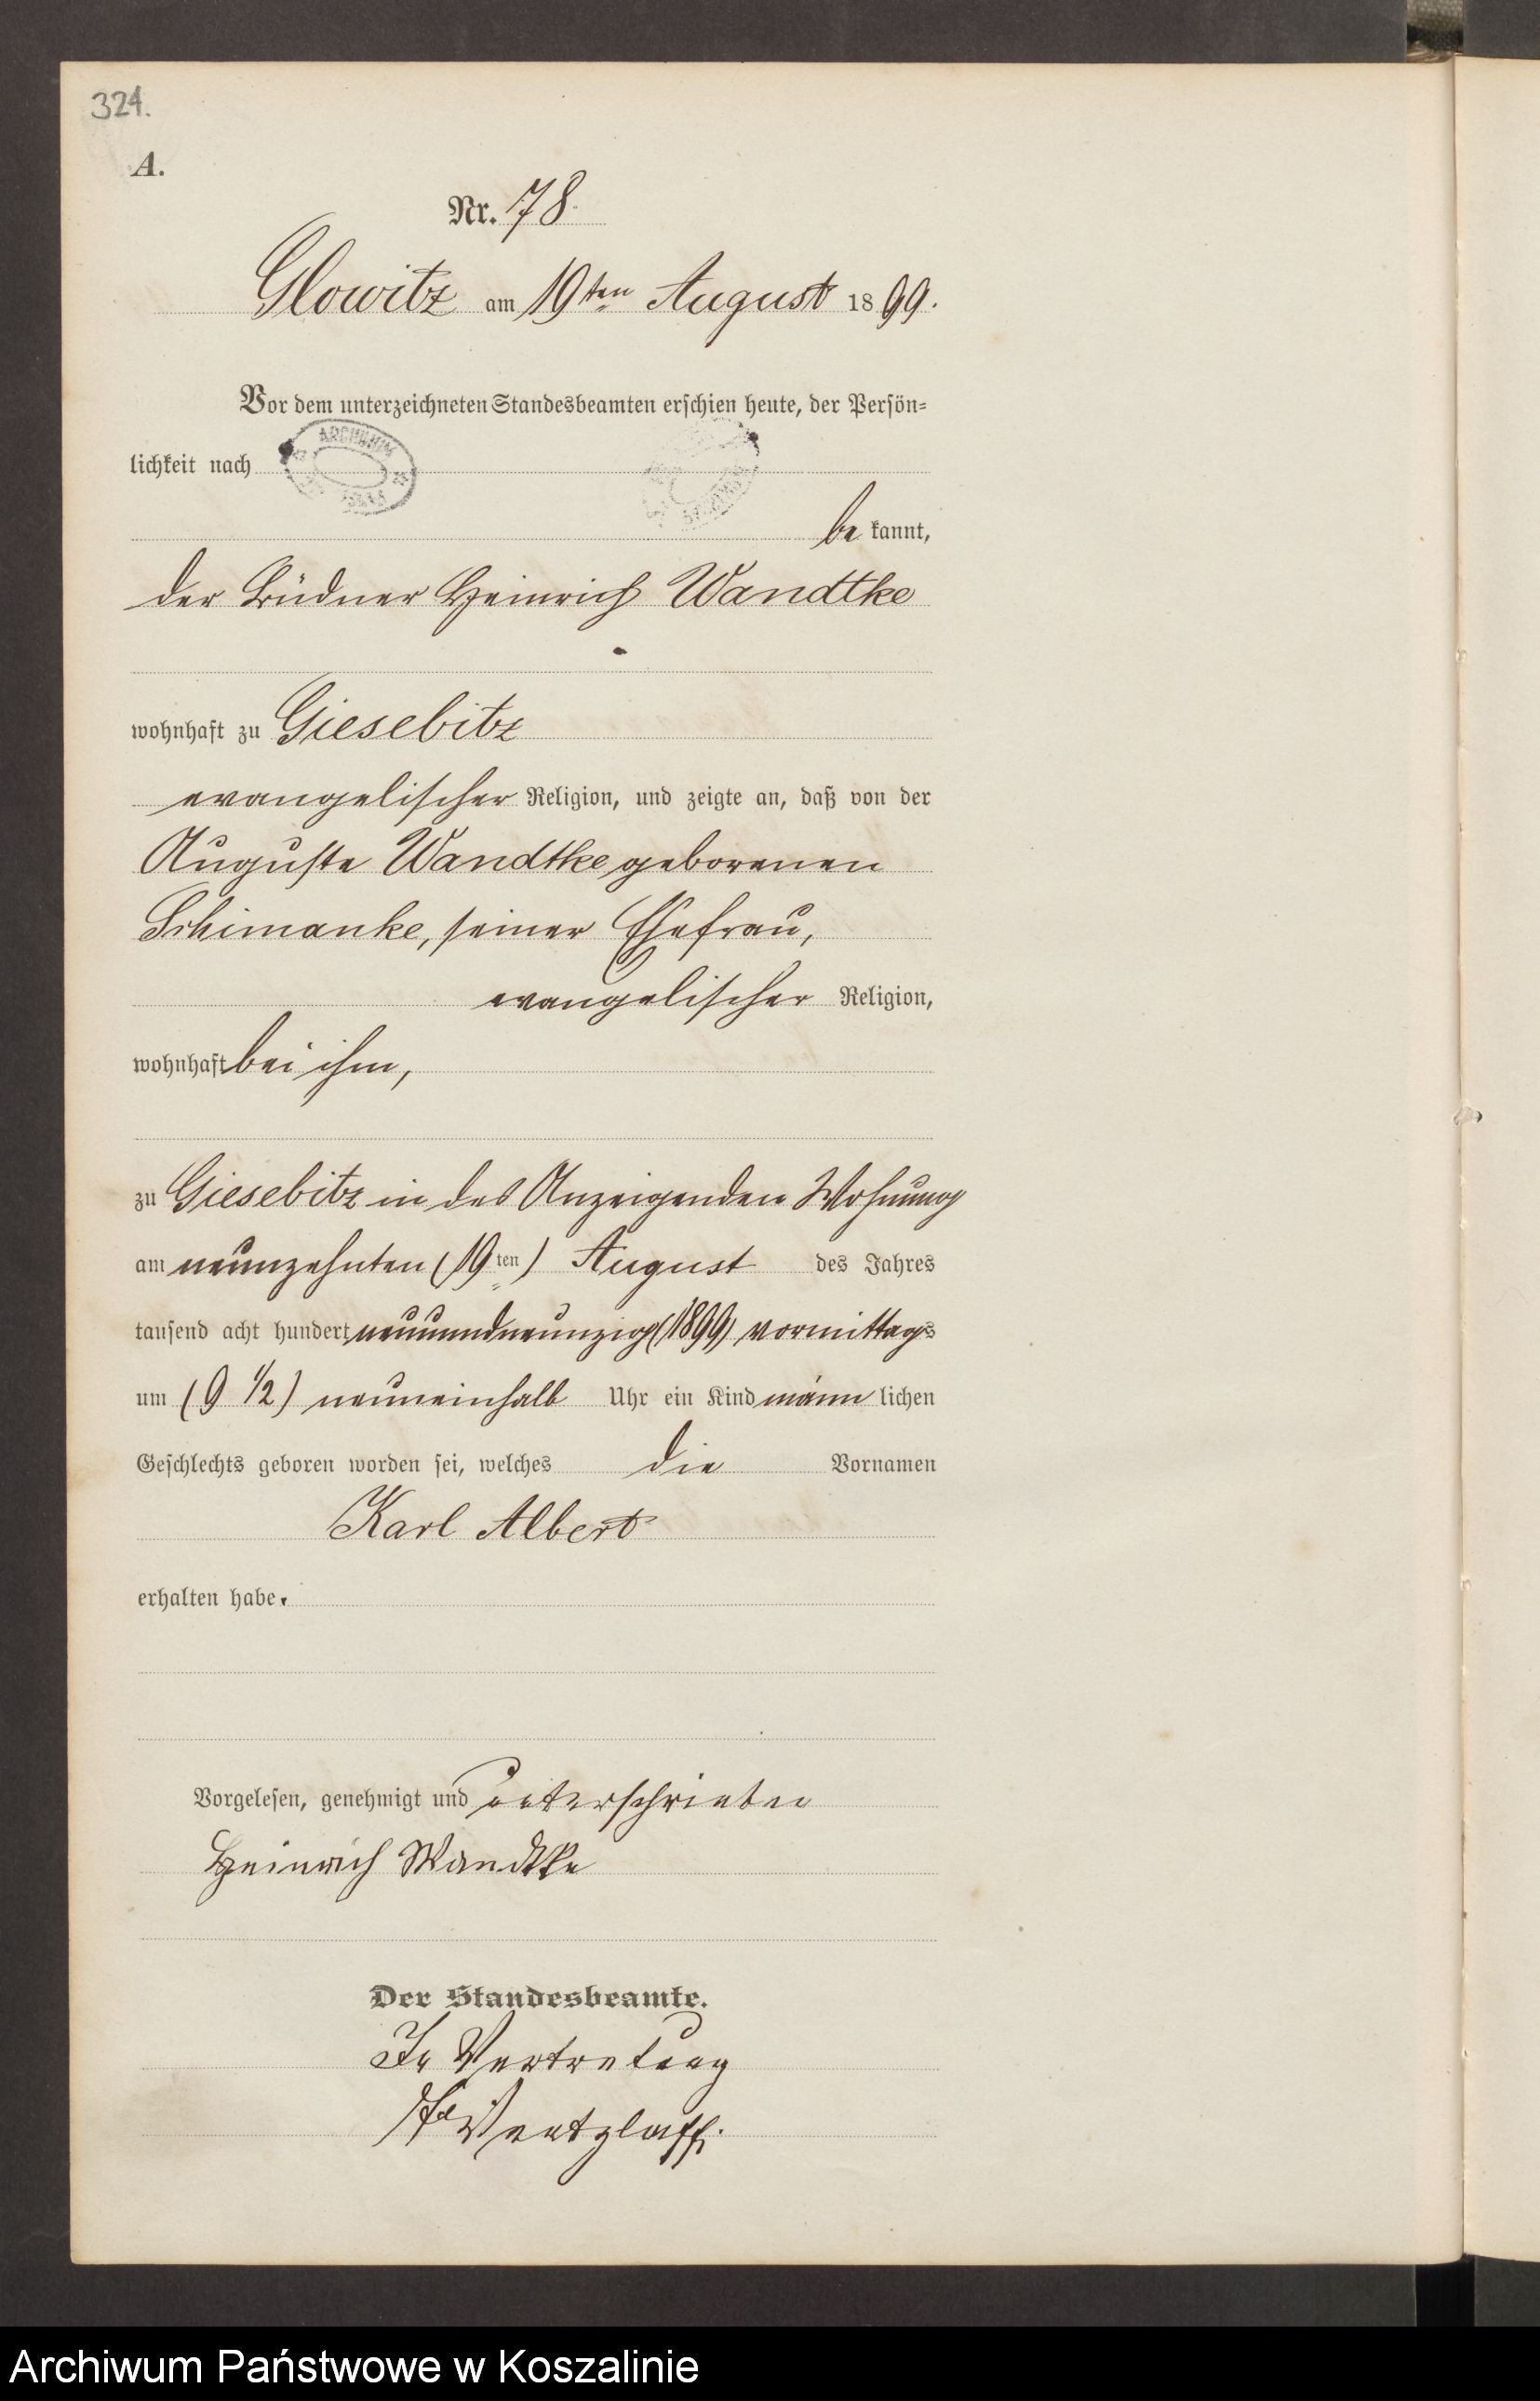 324.
A.
Nr. 78
Glowitz am 19ten August 1899.
Vor dem unterzeichneten Standesbeamten erschien heute, der Persön-
lichkeit nach
be kannt,
der Büdner Heinrich Wandtke
wohnhaft zu Giesebitz
evangelischer Religion, und zeigte an, daß von der
Auguste Wandtke geborenen
Schimanke, seiner Ehefrau,
evangelischer Religion,
wohnhaft bei ihm,
zu Giesebitz in des Anzeigenden Wohnung
am neunzehnten (19ten) August des Jahres
tausend acht hundert neunundneunzig (1899) vormittags
um (9 1/2) neuneinhalb Uhr ein Kind männ lichen
Geschlechts geboren worden sei, welches die Vornamen
Karl Albert
erhalten habe.
Vorgelesen, genehmigt und unterschrieben
Heinrich Wandtke
Der Standesbeamte.
In Vertretung
Ventzlaff.
Archiwum Państwowe w Koszalinie